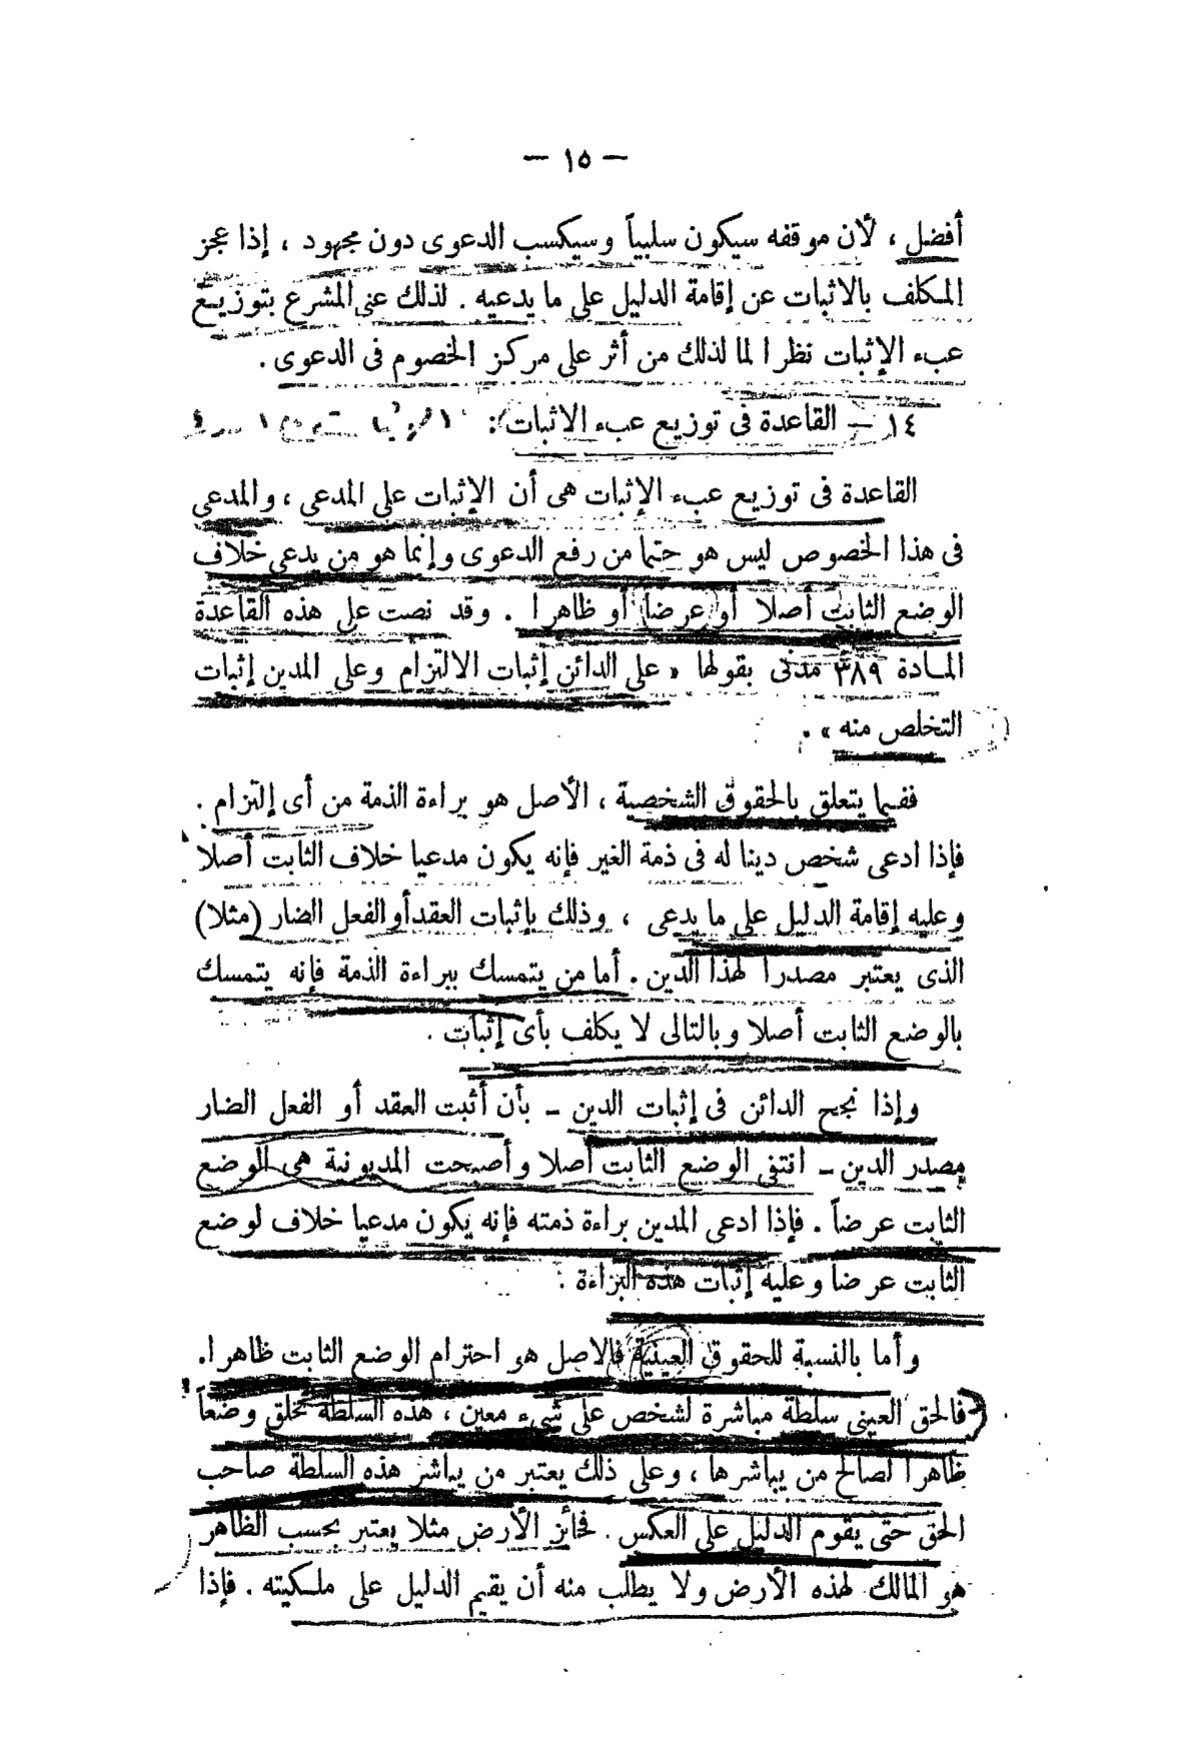 — ١٥ —
أفضل ، لأن موقفه سيكون سلبياً وسيكسب الدعوى دون مجهود ، إذا عجز
المكلف بالاثبات عن إقامة الدليل على ما يدعيه . لذلك عنى المشرع بتوزيع
عبء الإثبات نظرا لما لذلك من أثر على مركز الخصوم فى الدعوى .
١٤ — القاعدة فى توزيع عبء الاثبات :
القاعدة فى توزيع عبء الإثبات هى أن الإثبات على المدعى ، والمدعى
فى هذا الخصوص ليس هو حتما من رفع الدعوى وإنما هو من يدعى خلاف
الوضع الثابت أصلا أو عرضا أو ظاهرا . وقد نصت على هذه القاعدة
المادة ٣٨٩ مدنى بقولها « على الدائن إثبات الالتزام وعلى المدين إثبات
التخلص منه » .
ففيما يتعلق بالحقوق الشخصية ، الأصل هو براءة الذمة من أى إلتزام .
فإذا ادعى شخص دينا له فى ذمة الغير فإنه يكون مدعيا خلاف الثابت أصلا
وعليه إقامة الدليل على ما يدعى ، وذلك بإثبات العقد أو الفعل الضار (مثلا)
الذى يعتبر مصدرا لهذا الدين . أما من يتمسك ببراءة الذمة فإنه يتمسك
بالوضع الثابت أصلا وبالتالى لا يكلف بأى إثبات .
وإذا نجح الدائن فى إثبات الدين – بأن أثبت العقد أو الفعل الضار
مصدر الدين – انتفى الوضع الثابت أصلا وأصبحت المديونية هى الوضع
الثابت عرضاً . فإذا ادعى المدين براءة ذمته فإنه يكون مدعيا خلاف لوضع
الثابت عرضا وعليه إثبات هذه البراءة .
وأما بالنسبة للحقوق العينية فالاصل هو احترام الوضع الثابت ظاهرا.
فالحق العينى سلطة مباشرة لشخص على شىء معين ، هذه السلطة تخلق وضعاً
ظاهرا لصالح من يباشرها ، وعلى ذلك يعتبر من يباشر هذه السلطة صاحب
الحق حتى يقوم الدليل على العكس . فحائز الأرض مثلا يعتبر بحسب الظاهر
هو المالك لهذه الأرض ولا يطلب منه أن يقيم الدليل على ملكيته . فإذا